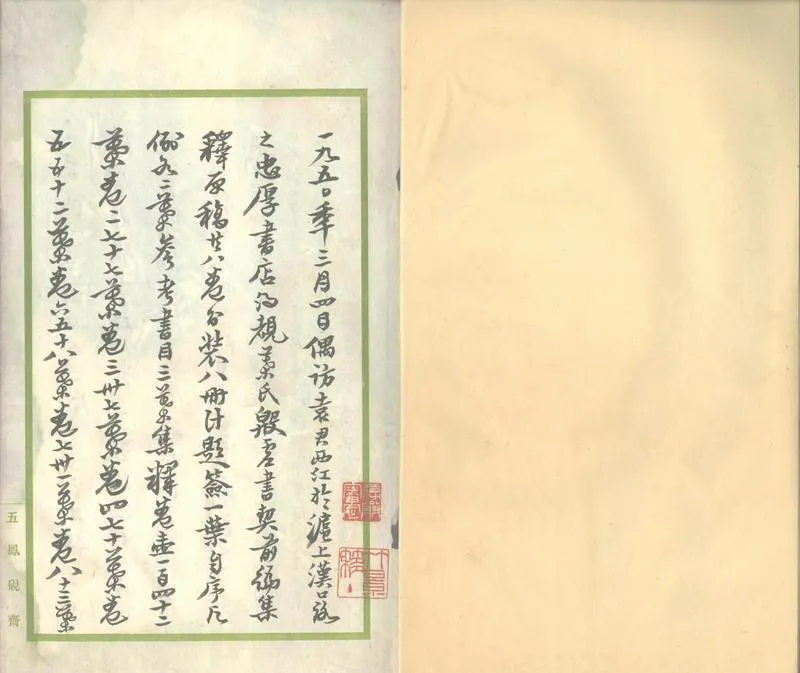 一九五〇秊三月四日偶訪袁君西江於滬上漢口路
之忠厚書店得覩葉氏殷虛書契前編集
釋原稿共八卷分裝八冊計題簽一葉自序凡
例各二葉參考書目三葉集釋卷壹一百四十二
葉卷二七十七葉卷三卅七葉卷四七十葉卷
五五十二葉卷六五十八葉卷七卅一葉卷八十三葉
五鳳硯齋